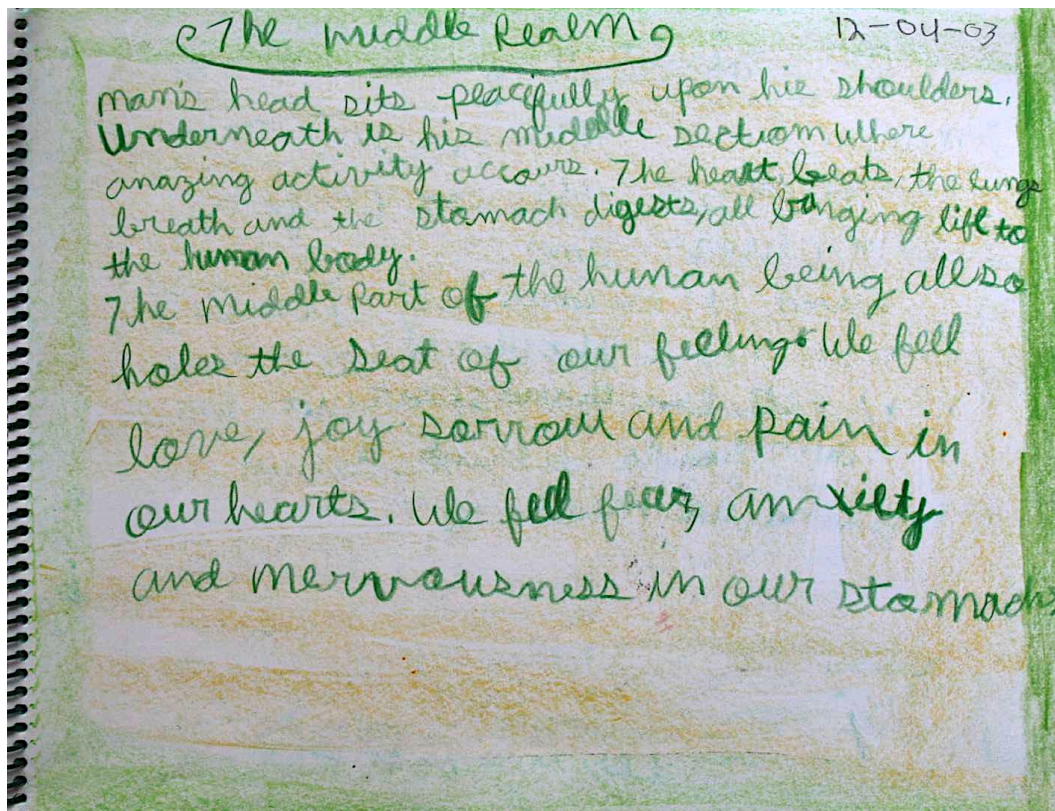 The Middle Realm
12-04-03
man's head sits peacefully upon his shoulders.
Underneath is his middle section where
amazing activity accours. The heart beats, the lungs
breath and the stomach digests, all bringing life to
the human body.
The middle Part of the human being allso
holes the seat of our feelings We feel
love, joy sorrow and pain in
our hearts. We feel fear, anxiety
and nervousness in our stomachs